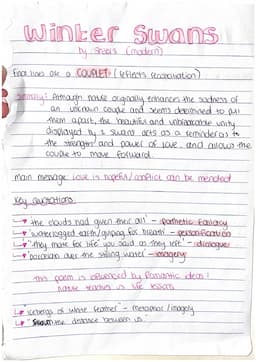 Winter Swans
by Sheers (modern)
Final lines are a COUPLET (reflects reconciliation)
Summary: Although nature originally enhances the sadness of
an unknown couple and seems determined to pull
them apart, the beautiful and unbreakable unity
displayed by 2 swans acts as a reminder as to
the strength and power of love, and allows the
couple to move forward.
main message: love is hopeful / conflict can be mended
Key quotations:
↳ "the clouds had given their all" - pathetic fallacy
↳ "waterlogged earth / gulping for breath" - personification
↳ "'they mate for life' you said as they left" - dialogue
↳ "porcelain over the stilling water" - imagery
This poem is influenced by Romantic ideas!
Nature teaches us life lessons
↳ "icebergs of white feather" - metaphor/imagery
↳ the distance between us"